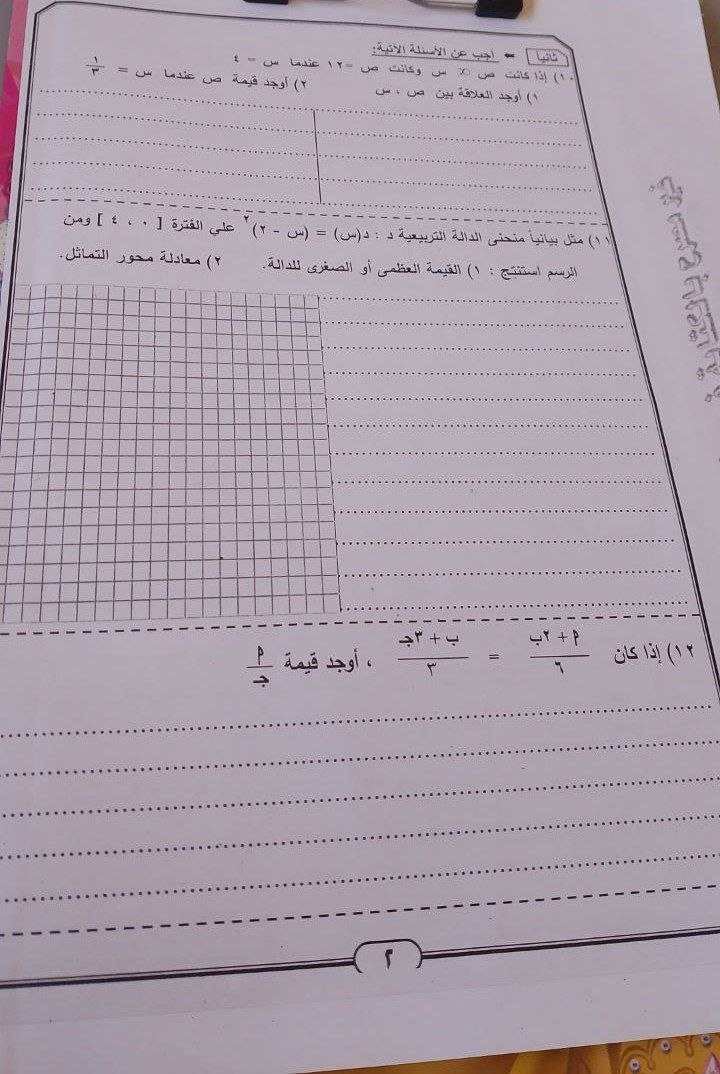 ثانيا ➨ أجب عن الأسئلة الآتية:
١٠) إذا كانت ص ∝ س وكانت ص = ١٢ عندما س = ٤
١) أوجد العلاقة بين ص ، س ٢) أوجد قيمة ص عندما س = ١/٣
١١) مثل بيانياً منحنى الدالة التربيعية د : د(س) = (س - ٢)² علي الفترة [ ٠ ، ٤ ] ومن
الرسم استنتج : ١) القيمة العظمى أو الصغرى للدالة. ٢) معادلة محور التماثل.
١٢) إذا كان (٢ب + م)/٦ = (ب + ٣جـ)/٣ ، أوجد قيمة م/جـ
٢